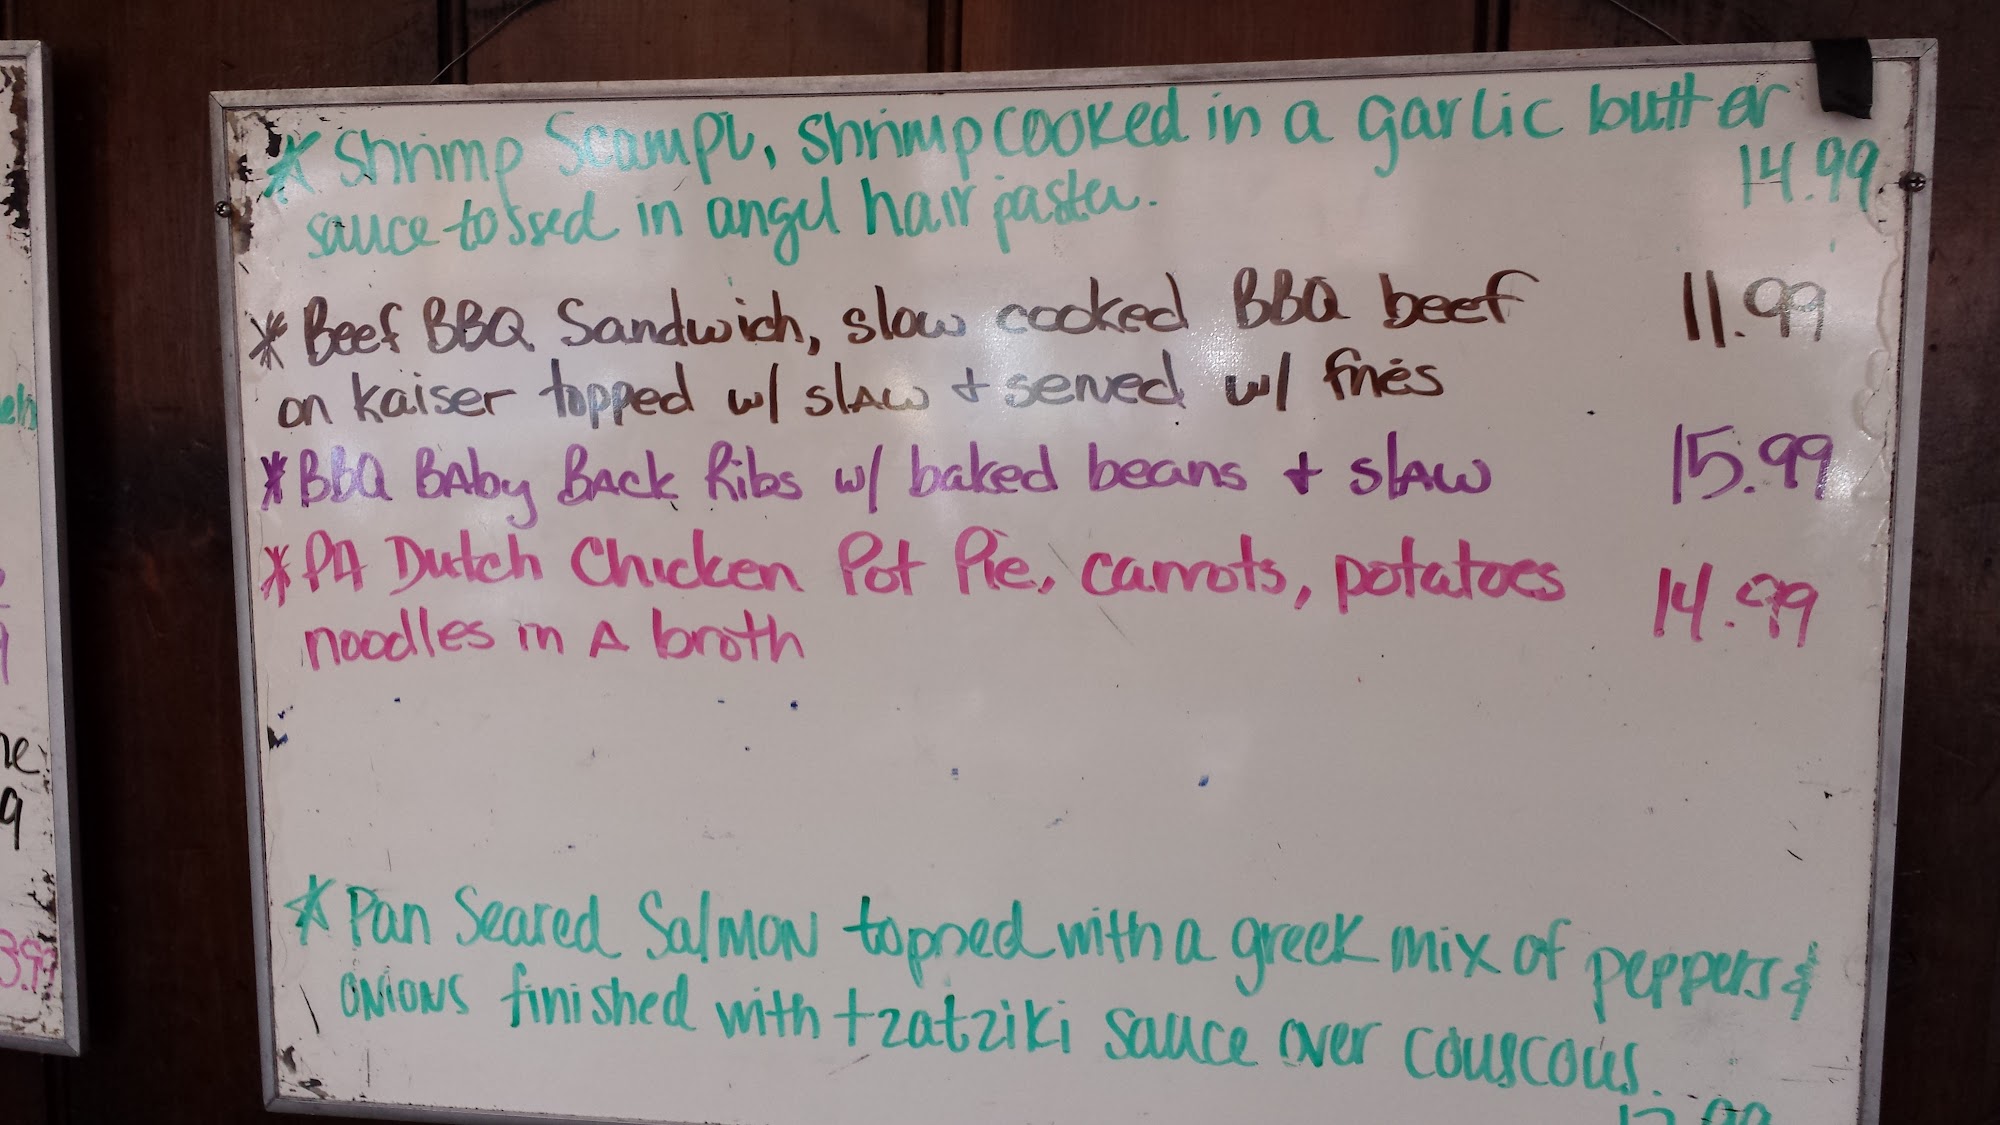 * Shrimp Scampi, shrimp cooked in a garlic butter
14.99
sauce tossed in angel hair pasta.
* Beef BBQ Sandwich, slow cooked BBQ beef 11.99
on kaiser topped w/ slaw + served w/ fries
* BBQ BAby BAck Ribs w/ baked beans + slAw 15.99
* PA Dutch Chicken Pot Pie, carrots, potatoes 14.99
noodles in A broth
* Pan Seared SalMON topped with a greek mix of peppers &
ONIONS finished with tzatziki sauce over couscous.